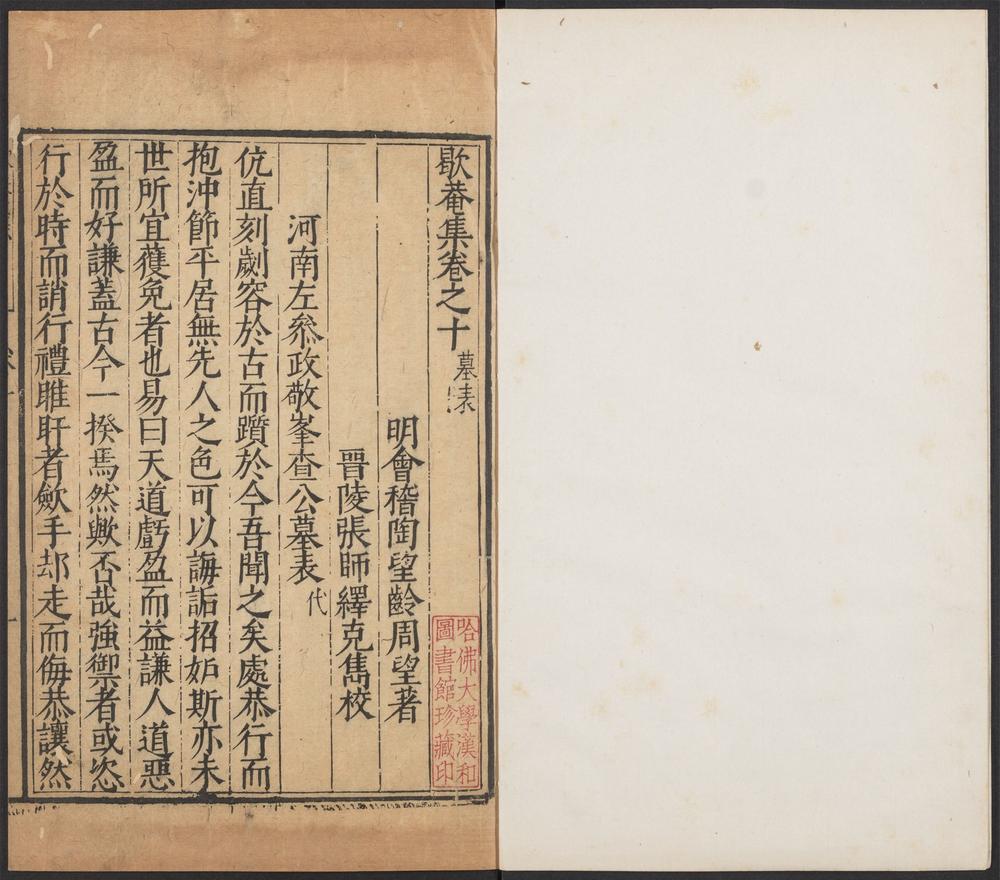 歇菴集卷之十 墓表
明會稽陶望齡周望著
晉陵張師繹克雋校
河南左叅政敬峯查公墓表 代
伉直刻劌容於古而躓於今吾聞之矣處恭行而
抱沖節平居無先人之色可以誨詬招妒斯亦未
世所宜蒦免者也易曰天道虧盈而益謙人道惡
盈而好謙蓋古今一揆焉然歟否哉強禦者或恣
行於時而誚行禮睢盱者歛手却走而侮恭讓然
哈佛大學漢和
圖書館珍藏印